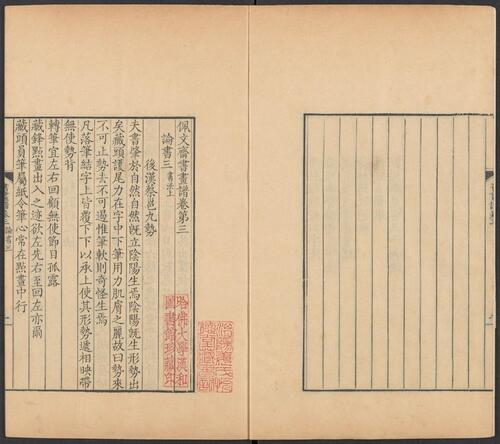 佩文齋書畫譜卷第三
論書三 書法上
後漢蔡邕九勢
夫書肇於自然自然既立陰陽生焉陰陽既生形勢出
矣藏頭護尾力在字中下筆用力肌膚之麗故曰勢來
不可止勢去不可遏惟筆軟則奇怪生焉
凡落筆結字上皆覆下下以承上使其形勢遞相映帶
無使勢背
轉筆宜左右回顧無使節目孤露
藏鋒㸃畫出入之迹欲左先右至回左亦爾
藏頭員筆屬紙令筆心常在㸃畫中行
哈佛大學漢和
圖書館珍藏印